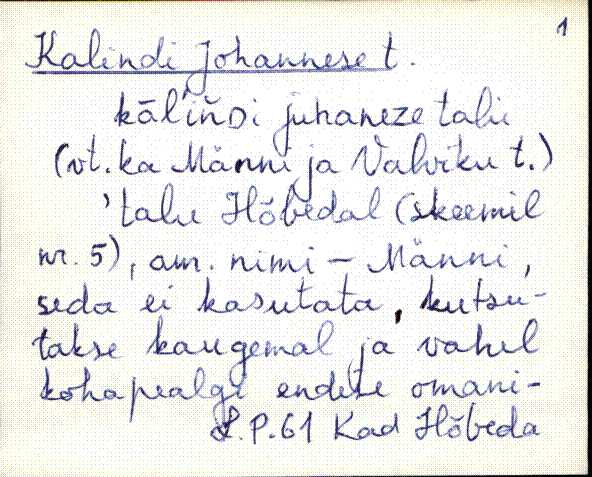 1
Kalindi Johannese t.
kāl'iňDi juhaneze talu
(vt. ka Männi ja Vahviku t.)
'talu Hõbedal (skeemil
nr. 5), am. nimi – Männi,
seda ei kasutata, kutsu-
takse kaugemal ja vahel
kohapealgi endiste omani-
L.P. 61 Kad Hõbeda